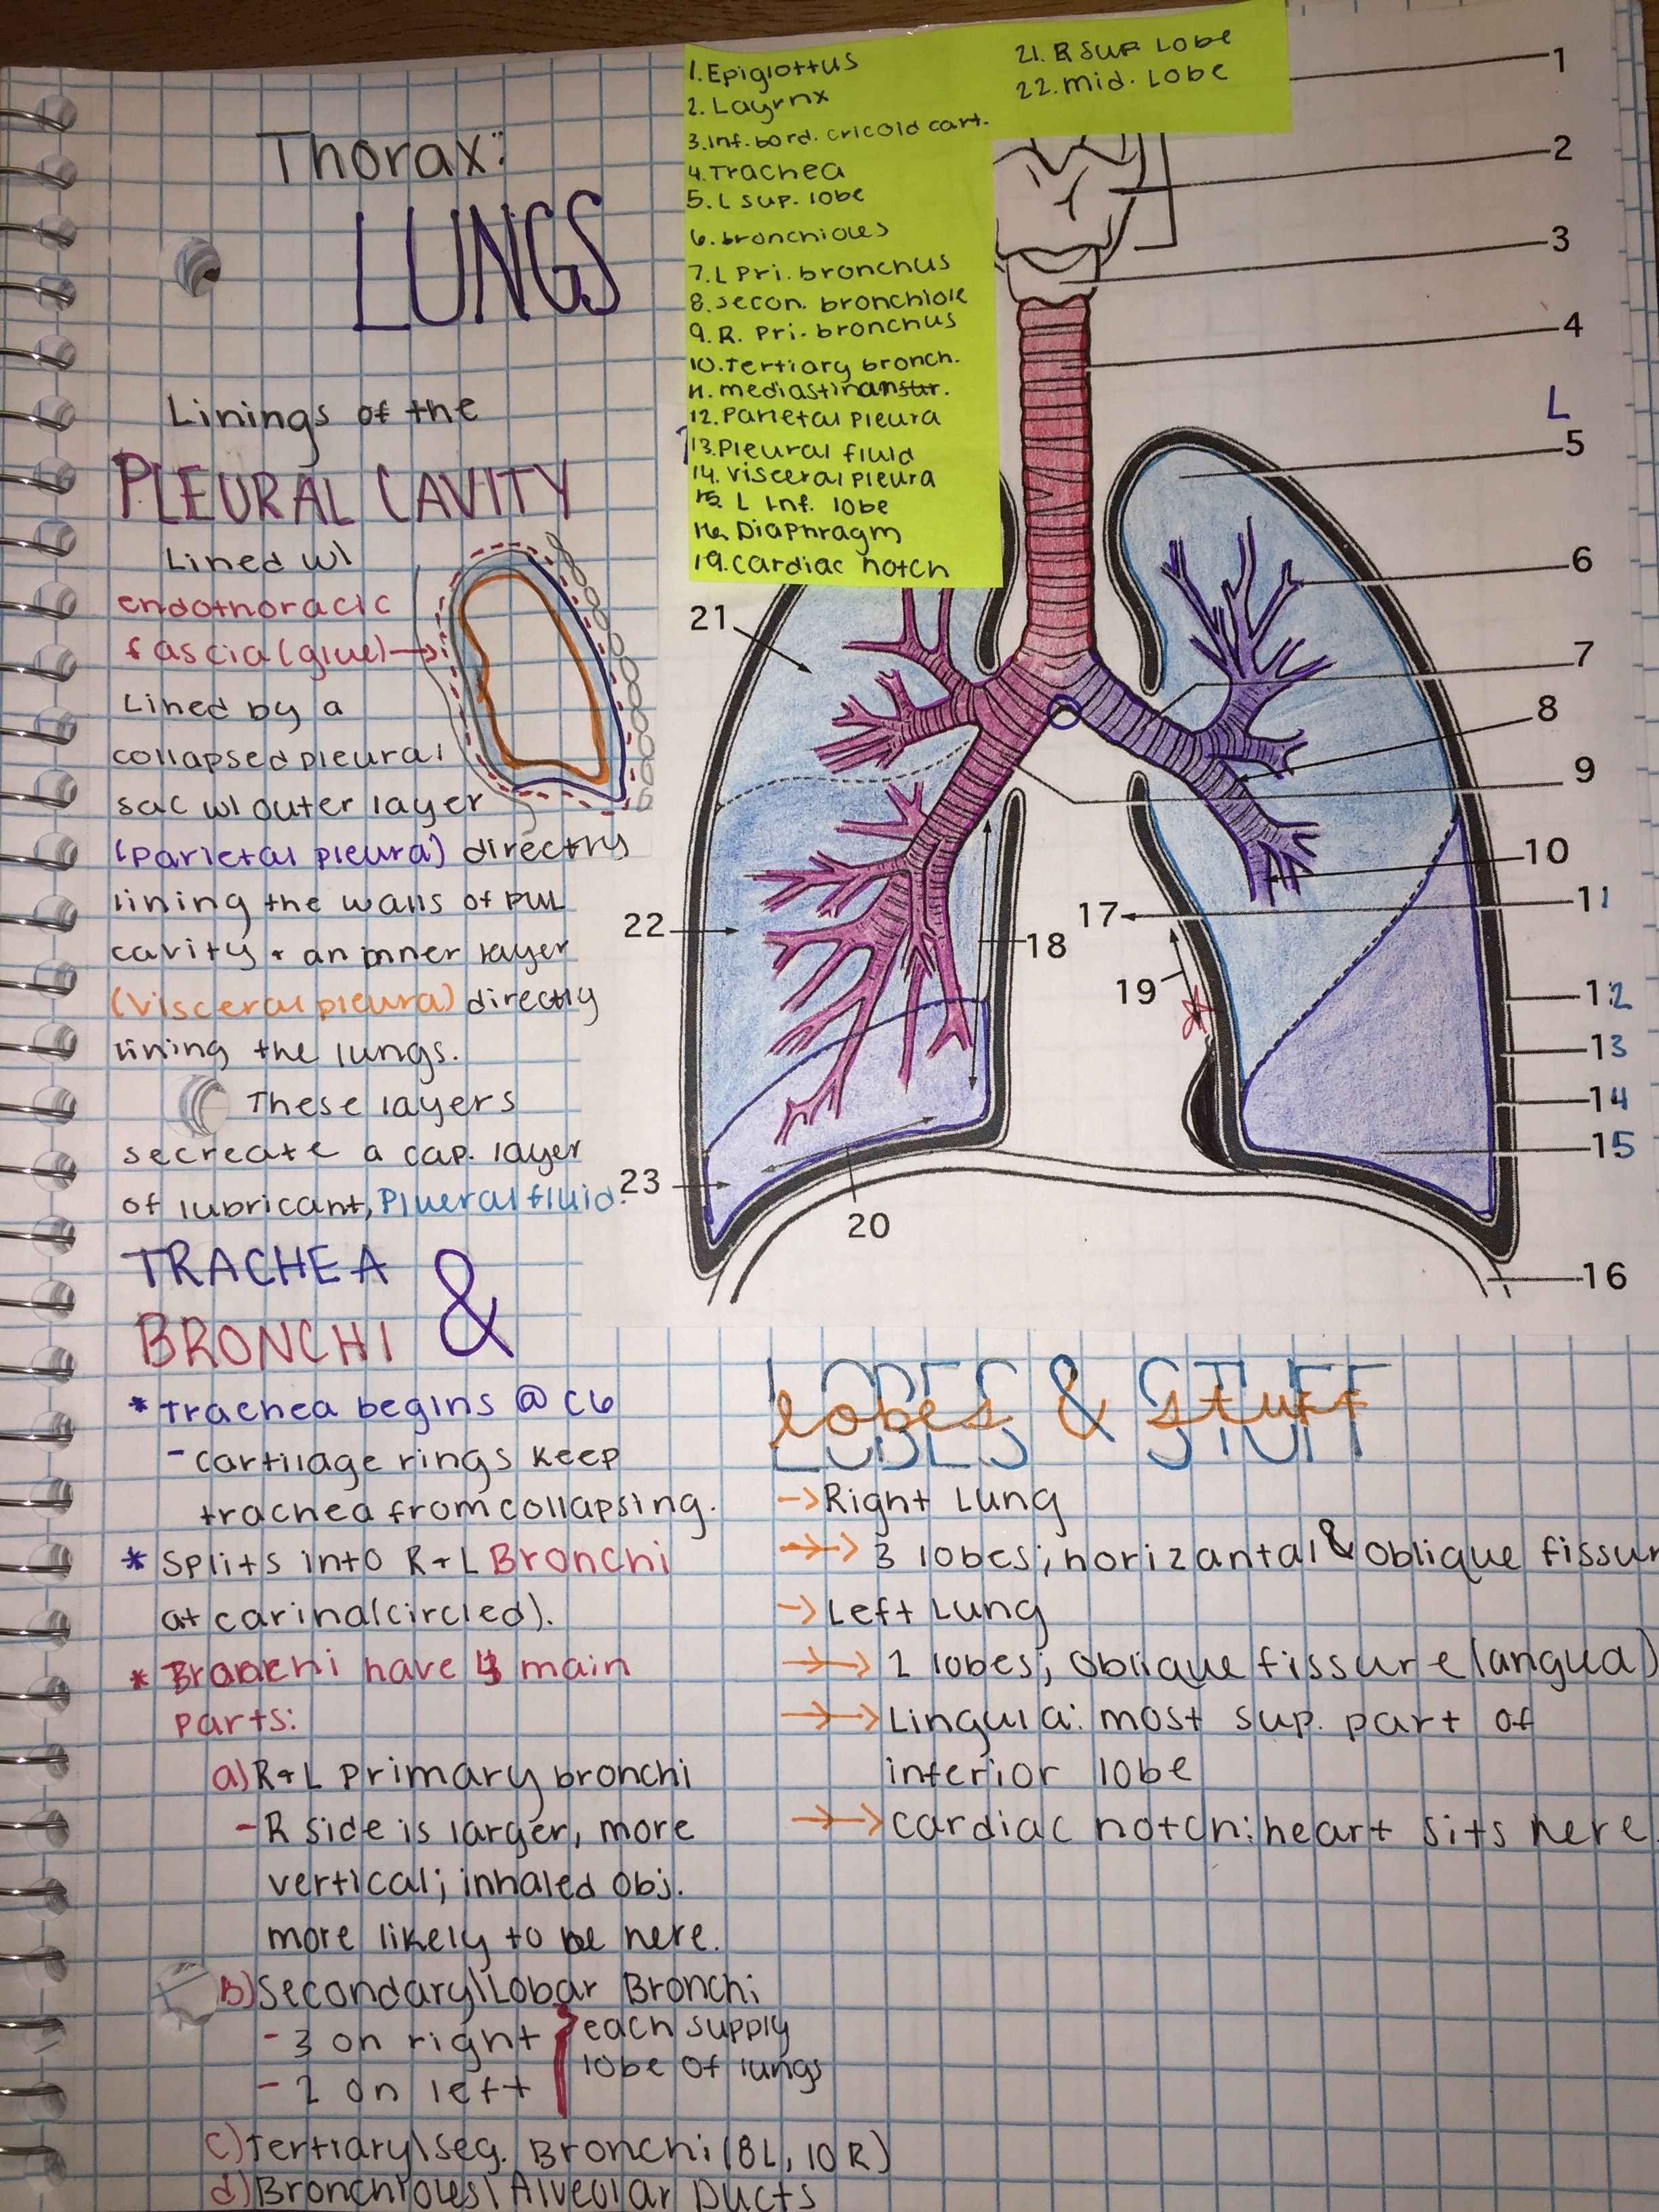 Thorax:
LUNGS
Linings of the
PLEURAL CAVITY
Lined w/
endothoracic
fascia (glue)
Lined by a
collapsed pleural
sac w/ outer layer
(parietal pleura) directly
lining the walls of pul
cavity + an inner layer
(visceral pleura) directly
lining the lungs.
These layers
secreate a cap. layer
of lubricant, Plueral fluid.
TRACHEA
&
BRONCHI
* trachea begins @ C6
- cartilage rings keep
trachea from collapsing.
* Splits into R + L Bronchi
at carina (circled).
* Bronchi have 4 main
parts:
a) R + L primary bronchi
- R side is larger, more
vertical; inhaled obj.
more likely to be here.
b) Secondary\Lobar Bronchi
- 3 on right
- 2 on left
each supply
lobe of lungs
c) Tertiary\seg. Bronchi (8L, 10R)
d) Bronchioles\Alveolar Ducts
1. Epiglottus
2. Layrnx
3. Inf. bord. cricoid cart.
4. Trachea
5. L sup. lobe
6. bronchioles
7. L Pri. bronchus
8. secon. bronchiole
9. R. Pri. bronchus
10. Tertiary bronch.
11. mediastinan str.
12. Parietal pleura
13. Pleural fluid
14. visceral pleura
15. L Inf. lobe
16. Diaphragm
19. cardiac notch
21. R SUP Lobe
22. mid. Lobe
1
2
3
4
L
5
6
7
8
9
10
11
12
13
14
15
16
17
18
19
20
21
22
23
LOBES & STUFF
lobes & stuff
Right Lung
3 lobes; horizantal & oblique fissur
Left Lung
2 lobes; oblique fissure (langua)
Lingula: most sup. part of
inferior lobe
cardiac notch: heart sits here